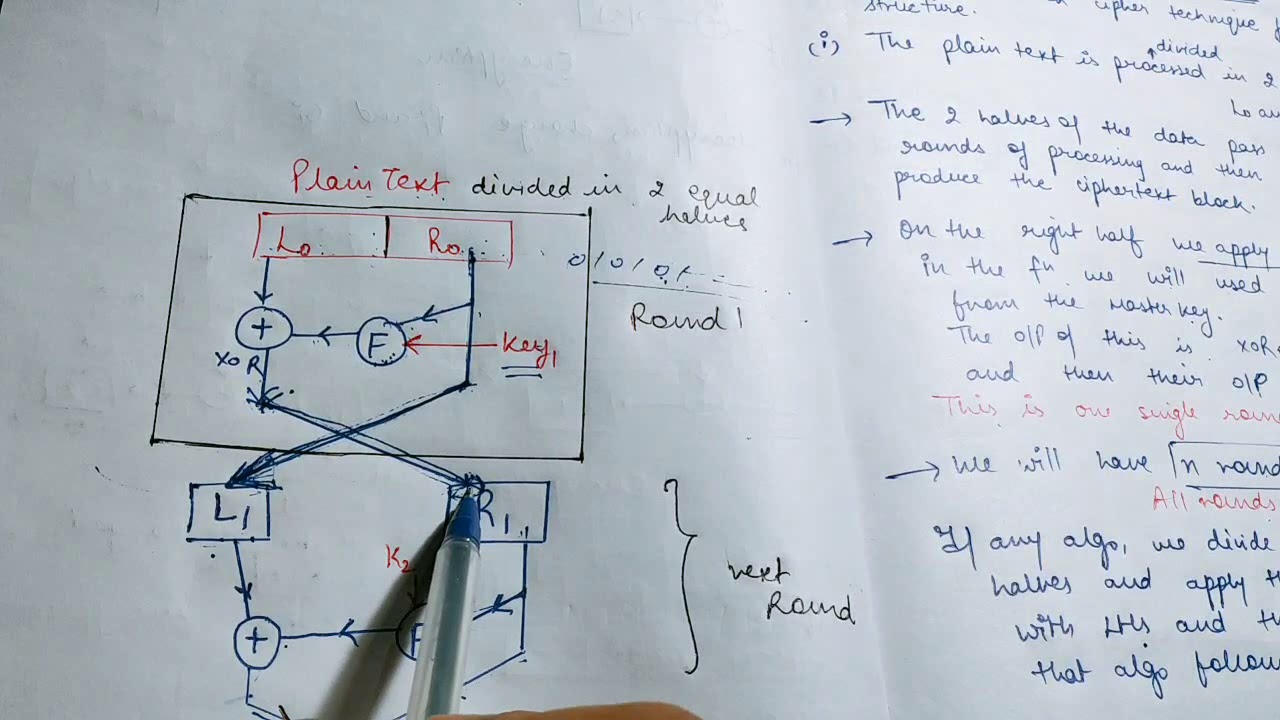 Plain Text divided in 2 equal
halves
L0 R0
010101
Round 1
+
F
Key1
XOR
L1
R1
K2
next
Round
+
F
structure.
cipher technique
(i) The plain text is processed in 2
divided
L0
→ The 2 halves of the data pass
rounds of processing and then
produce the ciphertext block.
→ On the right half we apply
in the fn we will used
from the master key.
The O/P of this is XOR
and then their O/P
This is one single roun
→ We will have n round
All rounds
If any algo, we divide
halves and apply th
with LHs and th
that algo follow